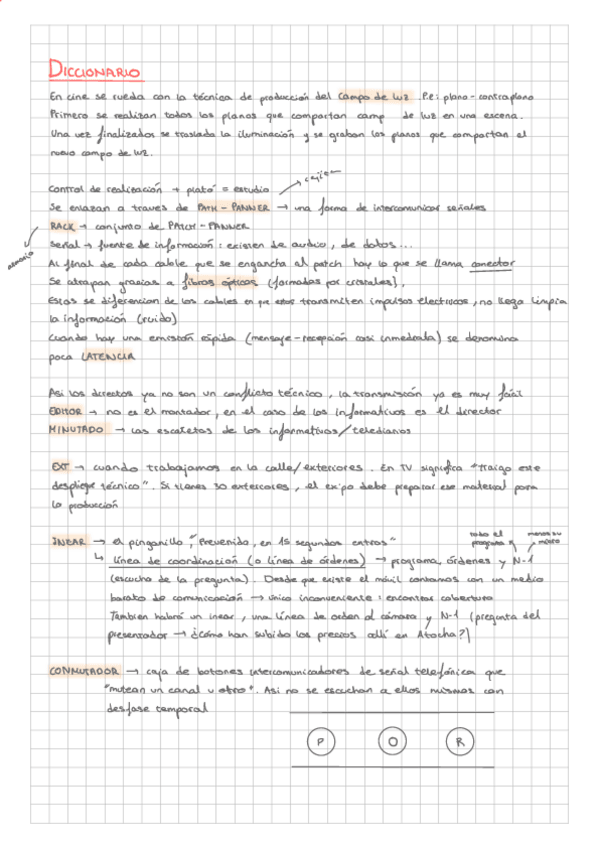 DICCIONARIO
En cine se rueda con la técnica de producción del campo de luz. P.e: plano-contraplano
Primero se realizan todos los planos que compartan camp de luz en una escena.
Una vez finalizados se traslada la iluminación y se graban los planos que compartan el
nuevo campo de luz.
Control de realización → plató = estudio
Se enlazan a traves de PATH-PANNER → una forma de intercomunicar señales
→ cajetin
RACK → conjunto de PATCH-PANNER
armario
Señal → fuente de información: existen de audio, de datos...
Al final de cada cable que se engancha al patch hay lo que se llama conector
Se atrapan gracias a fibras ópticas (formadas por cristales).
Estas se diferencian de los cables en que estos transmiten impulsos electricos, no llega limpia
la información (ruido)
Cuando hay una emisión rápida (mensaje-recepción casi inmediata) se denomina
poca LATENCIA
Asi los directos ya no son un conflicto técnico, la transmisión ya es muy fácil
EDITOR → no es el montador, en el caso de los informativos es el director
MINUTADO → las escaletas de los informativos/telediarios
EXT → cuando trabajamos en la calle/exteriores. En TV significa "traigo este
despliegue técnico". Si tienes 30 exteriores, el equipo debe preparar ese material para
la producción
INEAR → el pinganillo, "Prevenido, en 15 segundos entras"
todo el programa
menos su micro
↳ línea de coordinación (o línea de órdenes) → programa, órdenes y N-1
(escucha de la pregunta). Desde que existe el móvil contamos con un medio
barato de comunicación → único inconveniente: encontrar cobertura
Tambien habrá un inear, una línea de orden al cámara y N-1 (pregunta del
presentador → ¿Cómo han subido los precios allí en Atocha?)
CONMUTADOR → caja de botones intercomunicadores de señal telefónica que
"mutean un canal u otro". Asi no se escuchan a ellos mismos con
desfase temporal
P O R